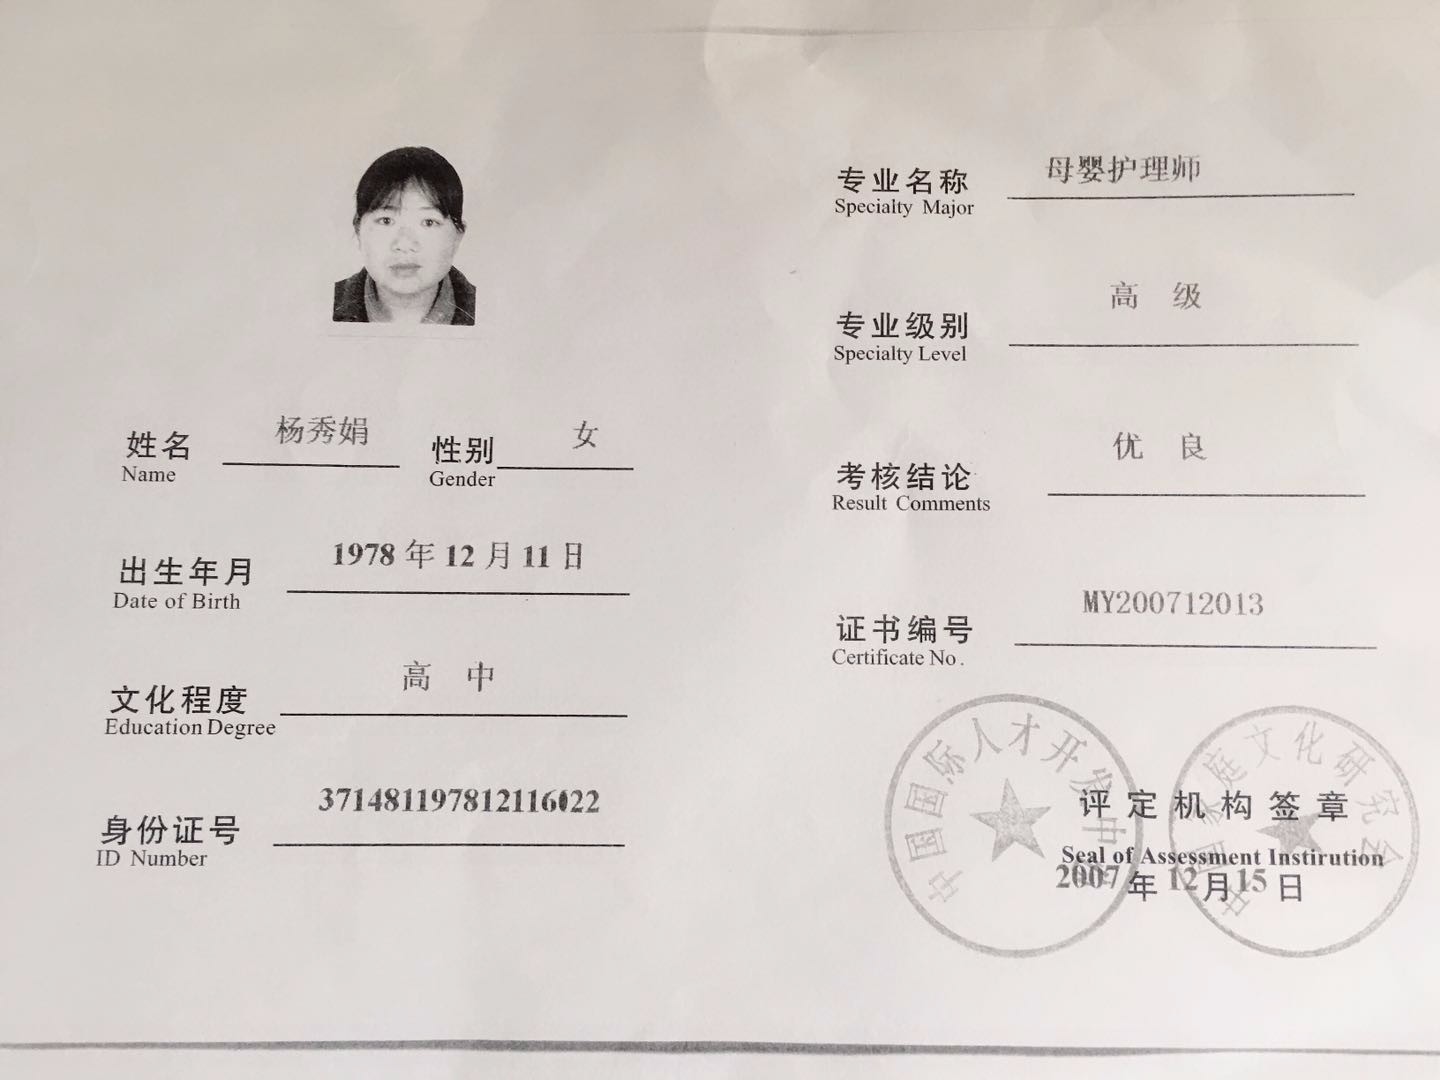 姓名 杨秀娟 性别 女
Name Gender
出生年月 1978年12月11日
Date of Birth
文化程度 高 中
Education Degree
身份证号 371481197812116022
ID Number
专业名称 母婴护理师
Specialty Major
专业级别 高 级
Specialty Level
考核结论 优 良
Result Comments
证书编号 MY200712013
Certificate No.
中国国际人才开发中心
中国家庭文化研究会
评定机构签章
Seal of Assessment Instirution
2007年12月15日